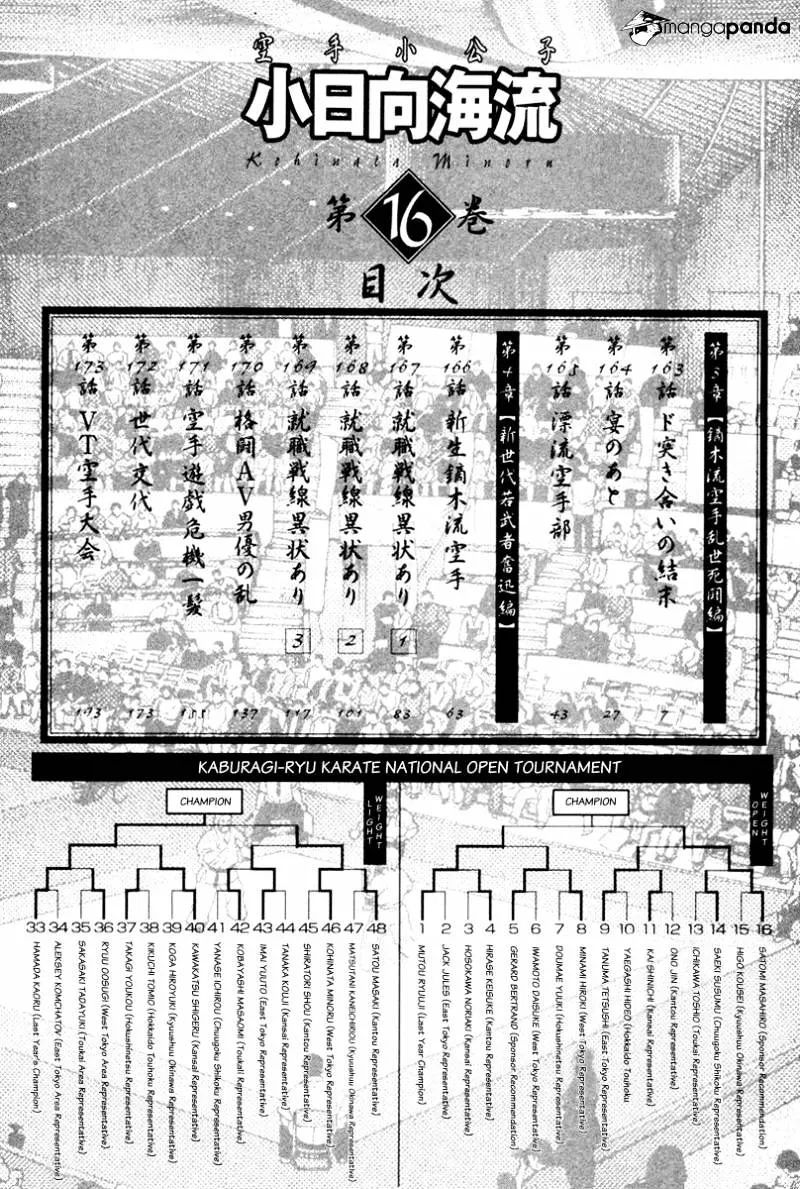 mangapanda
空手小公子
小日向海流
Kohinata Minoru
第16巻
目次
第3章【鏑木流空手乱世死闘編】
第163話 ド突き合いの結末 7
第164話 宴のあと 27
第165話 漂流空手部 43
第4章【新世代若武者奮迅編】
第166話 新生鏑木流空手 63
第167話 就職戦線異状あり 1 83
第168話 就職戦線異状あり 2 101
第169話 就職戦線異状あり 3 117
第170話 格闘AV男優の乱 137
第171話 空手遊戯危機一髪 155
第172話 世代交代 173
第173話 VT空手大会 193
KABURAGI-RYU KARATE NATIONAL OPEN TOURNAMENT
LIGHT WEIGHT
CHAMPION
33 HAMADA KAORU (Last Year's Champion)
34 ALEKSEY KOMCHATOV (East Tokyo Area Representative)
35 SAKASAKI TADAYUKI (Toukai Area Representative)
36 RYUU OOSUGI (West Tokyo Area Representative)
37 TAKAGI YOUKOU (Hokushinetsu Representative)
38 KIKUCHI TOMIO (Hokkaido Touhoku Representative)
39 KOGA HIROYUKI (Kyuushuu Okinawa Representative)
40 KAWAKATSU SHIGERU (Kansai Representative)
41 YANASE ICHIROU (Chuugoku Shikoku Representative)
42 KOBAYASHI MASAOMI (Toukai Representative)
43 IMAI YUUTO (East Tokyo Representative)
44 TANAKA KOUJI (Kansai Representative)
45 SHIRATORI SHOU (Kantou Representative)
46 KOHINATA MINORU (West Tokyo Representative)
47 MATSUTANI KANEICHIROU (Kyuushuu Okinawa Representative)
48 SATOU MASAKI (Kantou Representative)
OPEN WEIGHT
CHAMPION
1 MUTOU RYUUJI (Last Year Champion)
2 JACK JULES (East Tokyo Representative)
3 HOSOKAWA NORIAKI (Kansai Representative)
4 HIRASE KEISUKE (Kantou Representative)
5 GERARD BERTRAND (Sponsor Recommendation)
6 IWAMOTO DAISUKE (West Tokyo Representative)
7 DOUMAE YUUKI (Hokushinetsu Representative)
8 MINAMI HIROKI (West Tokyo Representative)
9 TANUMA TETSUSHI (East Tokyo Representative)
10 YAEGASHI HIDEO (Hokkaido Touhoku
11 KAI SHINICHI (Kansai Representative)
12 ONO JIN (Kantou Representative)
13 ICHIKAWA TOSHIO (Toukai Representative)
14 SAEKI SUSUMU (Chuugoku Shikoku Representative)
15 HIGO KOUSEI (Kyuushuu Okinawa Representative)
16 SATOMI MASAHIRO (Sponsor Recommendation)